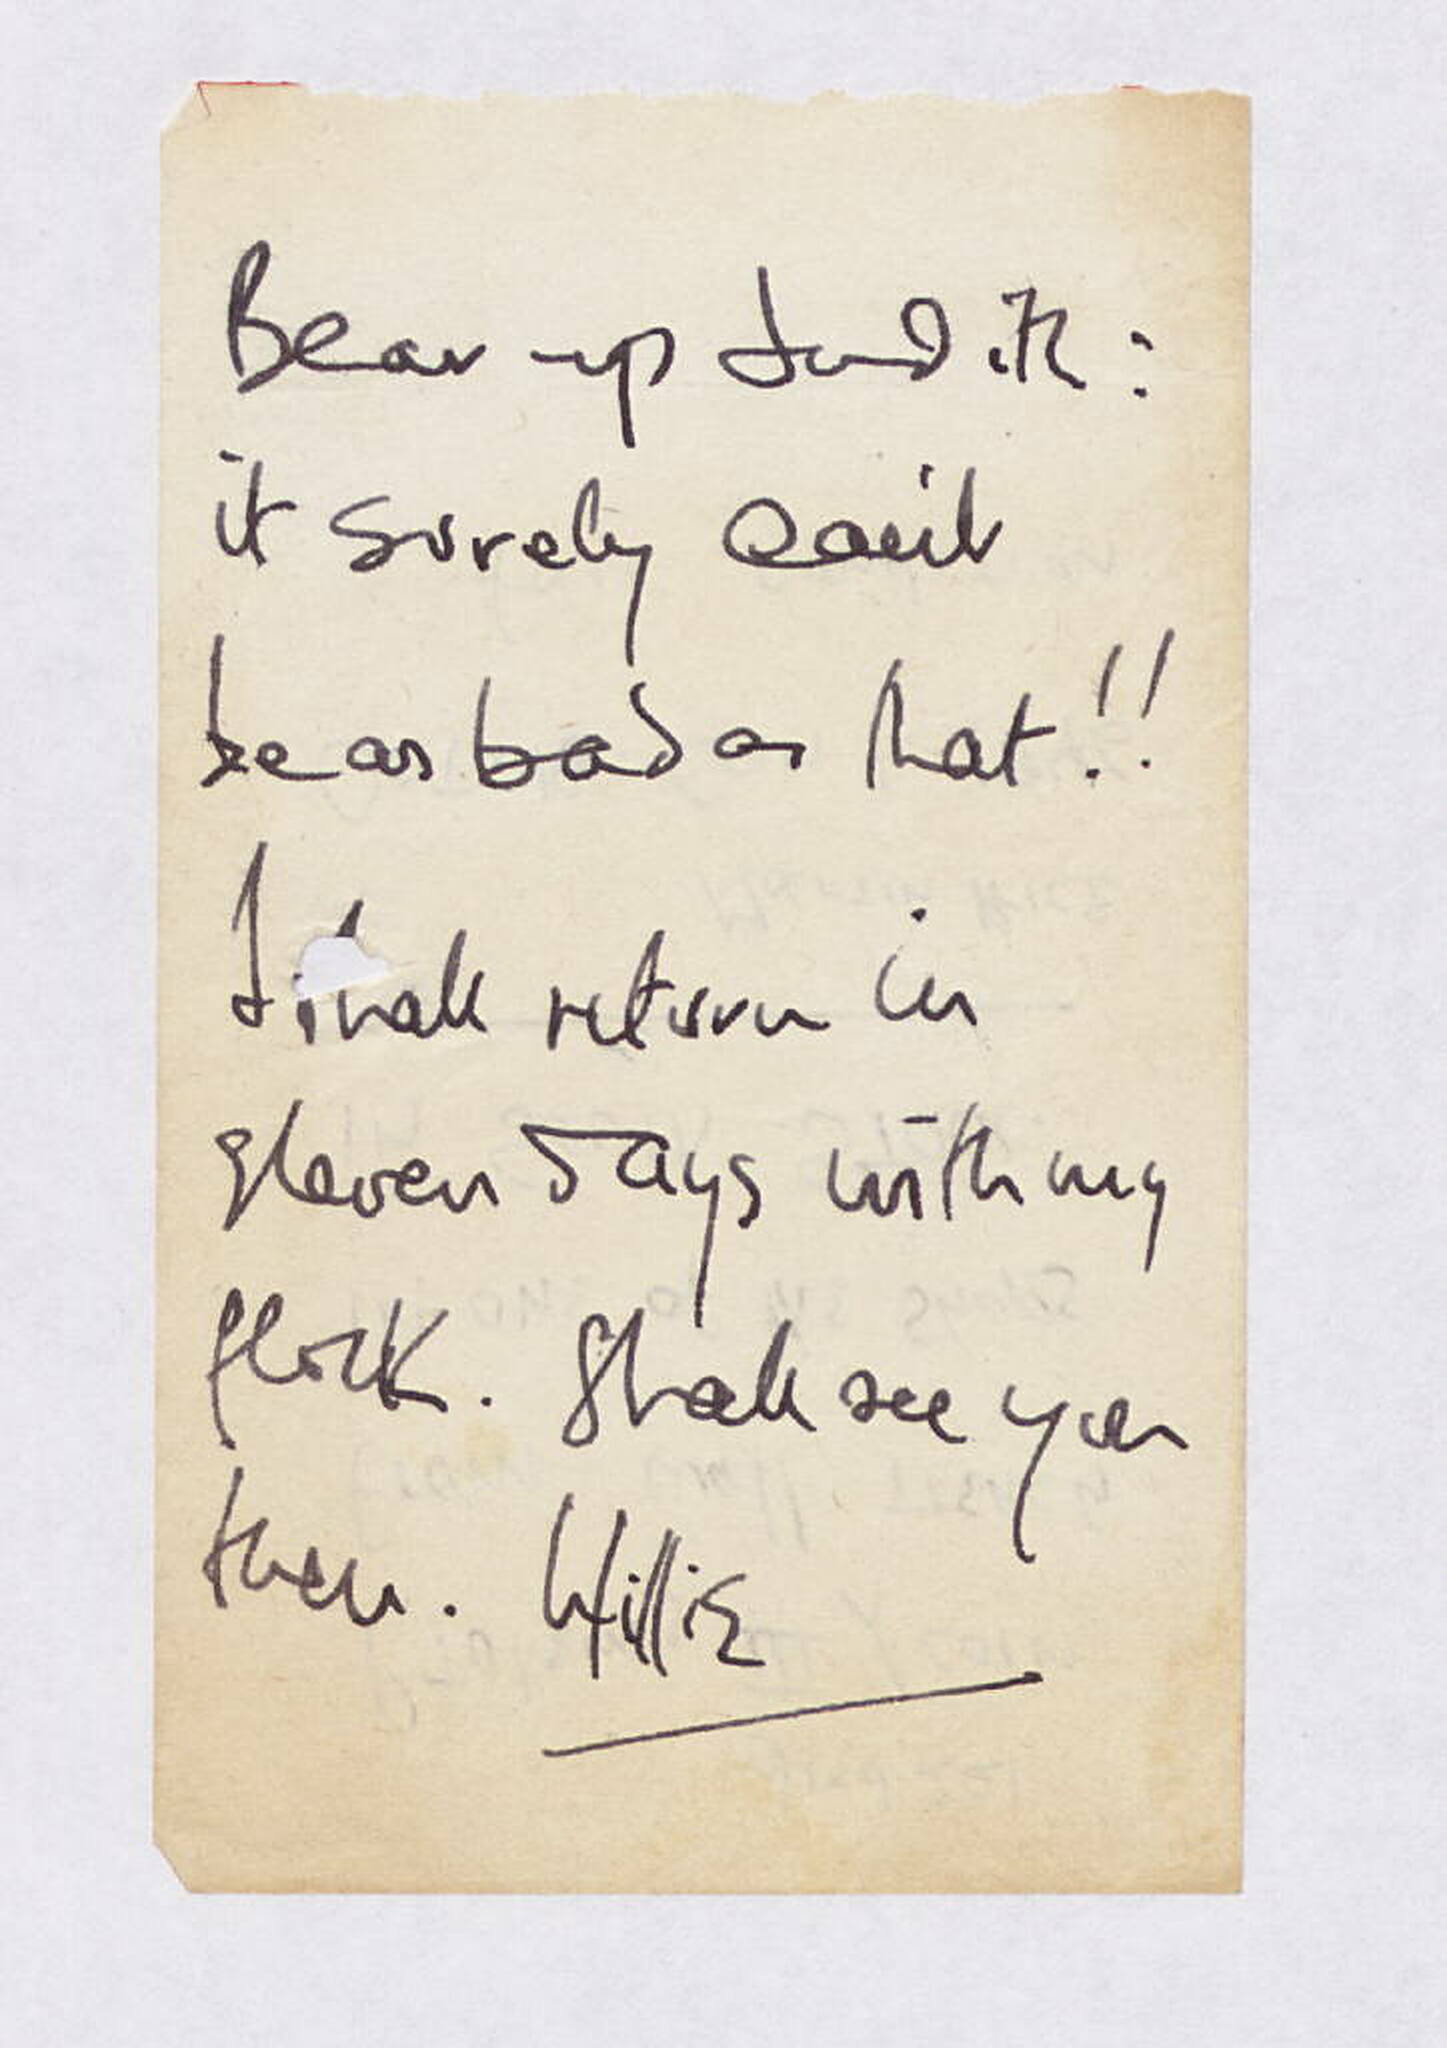 Bear up Judith:
it surely can't
be as bad as that!!
I shall return in
eleven days with my
flock. Shall see you
then. Willie